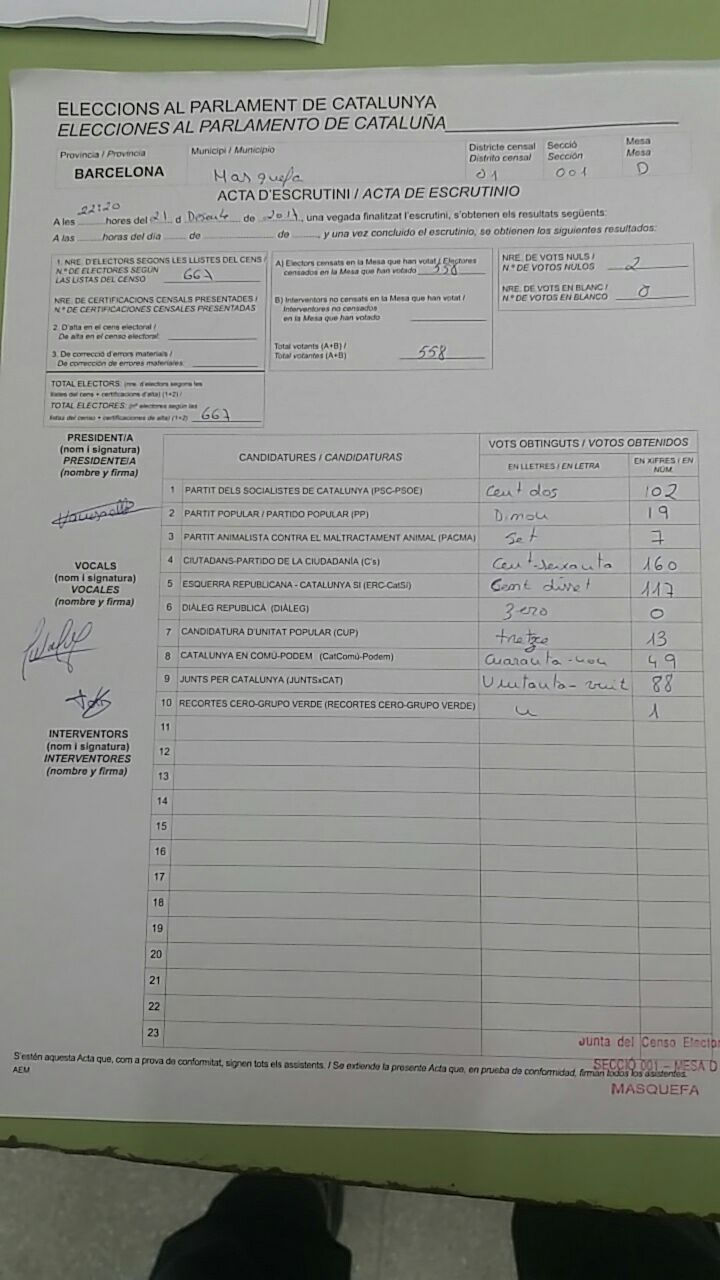 ELECCIONS AL PARLAMENT DE CATALUNYA
ELECCIONES AL PARLAMENTO DE CATALUÑA
Provincia / Provincia
BARCELONA
Municipi / Municipio
Masquefa
Districte censal
Distrito censal
01
Secció
Sección
001
Mesa
Mesa
D
ACTA D'ESCRUTINI / ACTA DE ESCRUTINIO
A les 22:20 hores del 21 d de 2017, una vegada finalitzat l'escrutini, s'obtenen els resultats següents:
A las ........ horas del día ...... de ............ de ........, y una vez concluido el escrutinio, se obtienen los siguientes resultados:
1. NRE. D'ELECTORS SEGONS LES LLISTES DEL CENS /
N.º DE ELECTORES SEGÚN
LAS LISTAS DEL CENSO 667
NRE. DE CERTIFICACIONS CENSALS PRESENTADES /
N.º DE CERTIFICACIONES CENSALES PRESENTADAS
2. D'alta en el cens electoral /
De alta en el censo electoral:
3. De correcció d'errors materials /
De corrección de errores materiales:
TOTAL ELECTORS: (nre. d'electors segons les
llistes del cens + certificacions d'alta) (1+2) /
TOTAL ELECTORES: (nº electores según las
listas del censo + certificaciones de alta) (1+2) 667
A) Electors censats en la Mesa que han votat / Electores
censados en la Mesa que han votado 558
B) Interventors no censats en la Mesa que han votat /
Interventores no censados
en la Mesa que han votado
Total votants (A+B) /
Total votantes (A+B) 558
NRE. DE VOTS NULS /
N.º DE VOTOS NULOS 2
NRE. DE VOTS EN BLANC /
N.º DE VOTOS EN BLANCO 0
PRESIDENT/A
(nom i signatura)
PRESIDENTE/A
(nombre y firma)
VOCALS
(nom i signatura)
VOCALES
(nombre y firma)
INTERVENTORS
(nom i signatura)
INTERVENTORES
(nombre y firma)
CANDIDATURES / CANDIDATURAS
VOTS OBTINGUTS / VOTOS OBTENIDOS
EN LLETRES / EN LETRA
EN XIFRES / EN
NÚM.
1 PARTIT DELS SOCIALISTES DE CATALUNYA (PSC-PSOE) Cent dos 102
2 PARTIT POPULAR / PARTIDO POPULAR (PP) Dinou 19
3 PARTIT ANIMALISTA CONTRA EL MALTRACTAMENT ANIMAL (PACMA) Set 7
4 CIUTADANS-PARTIDO DE LA CIUDADANÍA (C's) Cent-seixanta 160
5 ESQUERRA REPUBLICANA - CATALUNYA SÍ (ERC-CatSí) Cent disset 117
6 DIÀLEG REPUBLICÀ (DIÀLEG) Zero 0
7 CANDIDATURA D'UNITAT POPULAR (CUP) tretze 13
8 CATALUNYA EN COMÚ-PODEM (CatComú-Podem) Cuaranta-nou 49
9 JUNTS PER CATALUNYA (JUNTSxCAT) Vuitanta-vuit 88
10 RECORTES CERO-GRUPO VERDE (RECORTES CERO-GRUPO VERDE) u 1
11
12
13
14
15
16
17
18
19
20
21
22
23
S'estén aquesta Acta que, com a prova de conformitat, signen tots els assistents. / Se extiende la presente Acta que, en prueba de conformidad, firman todos los asistentes.
AEM
Junta del Censo Elector
SECCIÓ 001 - MESA D
MASQUEFA